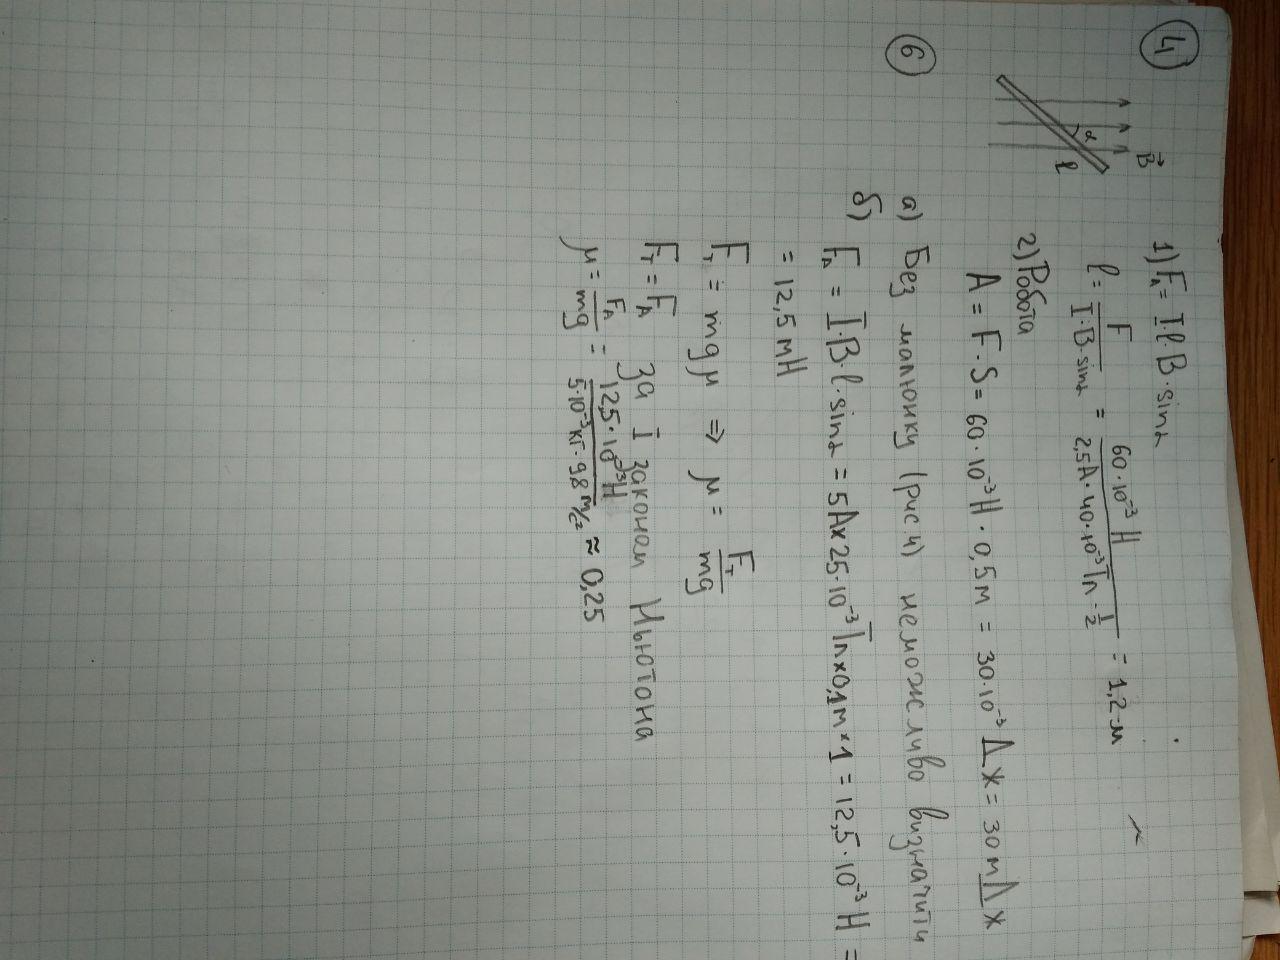 ④
B⃗
α
l
1) Fₐ = I·l·B·sinα
l = F / (I·B·sinα) = 60·10⁻³ Н / (2,5А·40·10⁻³ Тл·1/2) = 1,2 м
2) Робота
A = F·S = 60·10⁻³ Н · 0,5 м = 30·10⁻³ Дж = 30 мДж
⑥
а) Без малюнку (рис 4) неможливо визначити
б) Fₐ = I·B·l·sinα = 5А×25·10⁻³ Тл×0,1м×1 = 12,5·10⁻³ Н =
= 12,5 мН
Fт = mgμ ⇒ μ = Fт / mg
Fт = Fₐ за I законом Ньютона
μ = Fₐ / mg = 12,5·10⁻³ Н / (5·10⁻³ кг·9,8 м/с²) ≈ 0,25